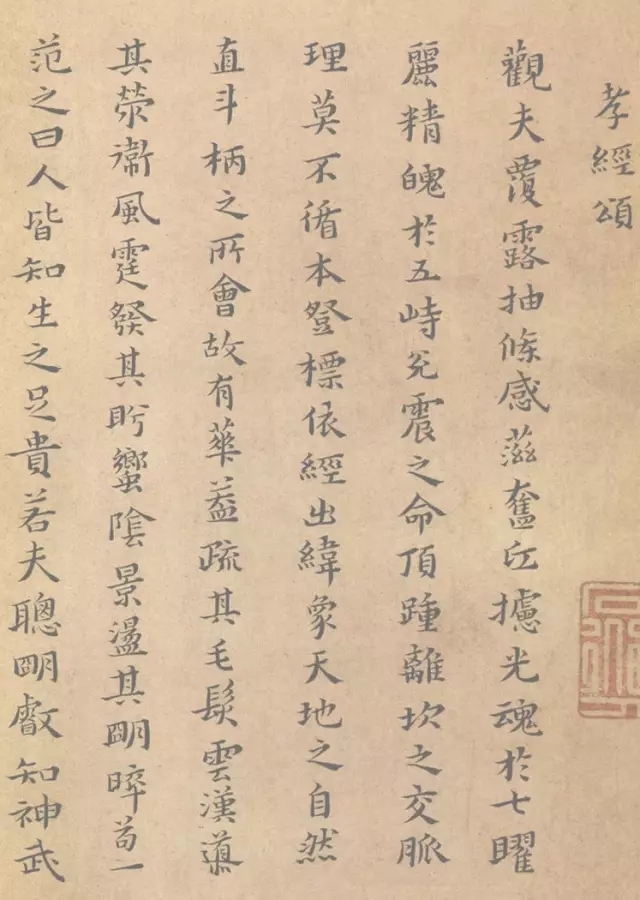 孝經頌
觀夫覆露抽條感蒎奮丘攄光魂於七曜
麗精魄於五峙兌震之命頂踵離坎之交脈
理莫不循本登標依經出緯象天地之自然
直斗柄之所會故有華蓋疏其毛髮雲漢導
其滎衞風霆發其肸蠁陰景盪其朙晬苟一
范之曰人皆知生之足貴若夫聰朙叡知神武